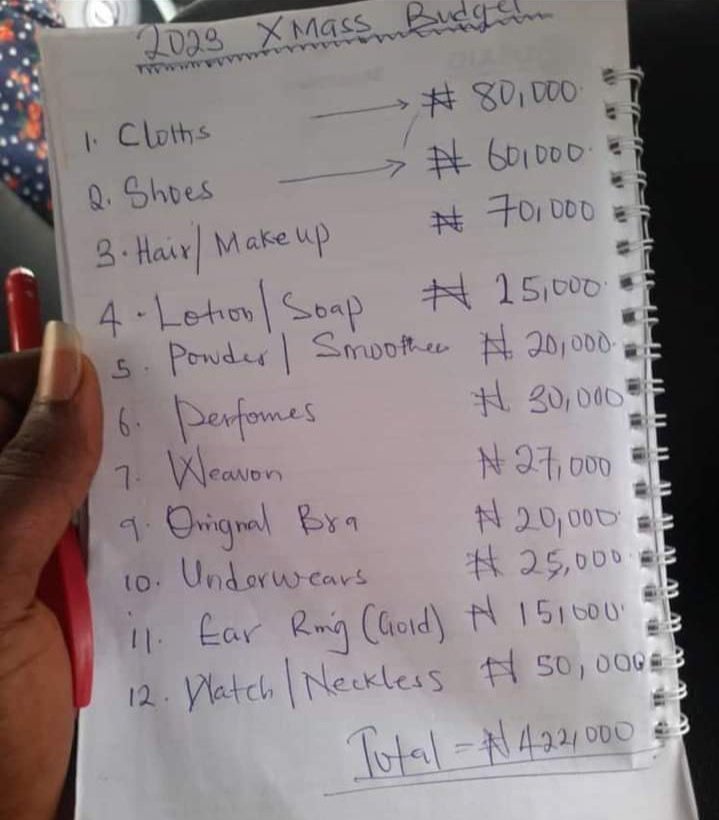 2023 XMass Budget
1. Cloths → ₦ 80,000
2. Shoes → ₦ 60,000
3. Hair/Makeup ₦ 70,000
4. Lotion/Soap ₦ 25,000
5. Powder/ Smoothee ₦ 20,000
6. Perfomes ₦ 30,000
7. Weavon ₦ 27,000
9. Orignal Bra ₦ 20,000
10. Underwears ₦ 25,000
11. Ear Ring (Gold) ₦ 15,000
12. Watch/Neckless ₦ 50,000
Total = ₦ 422,000